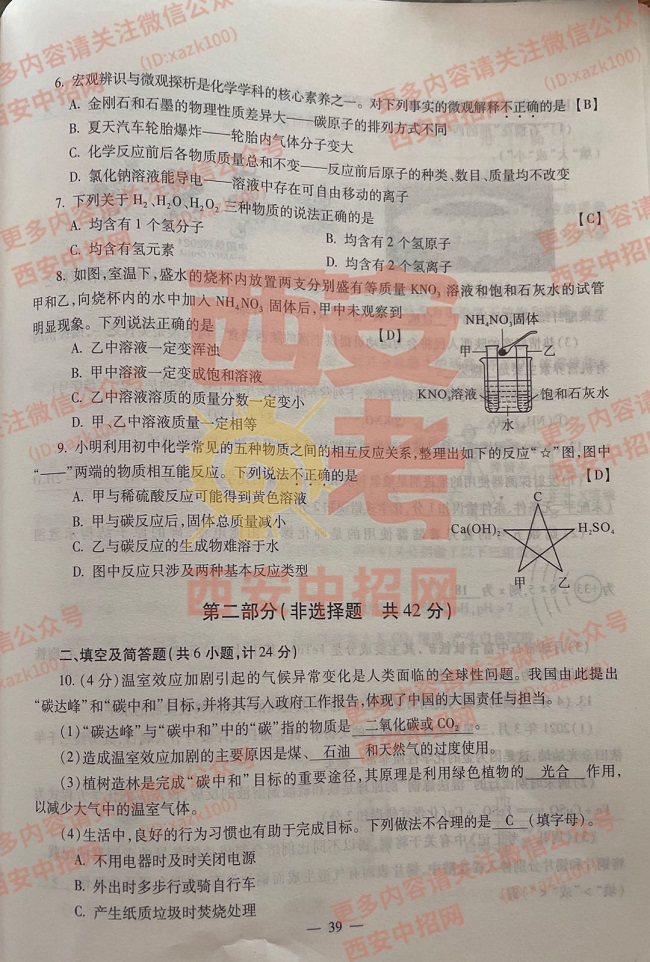 6. 宏观辨识与微观探析是化学学科的核心素养之一。对下列事实的微观解释不正确的是【B】
A. 金刚石和石墨的物理性质差异大——碳原子的排列方式不同
B. 夏天汽车轮胎爆炸——轮胎内气体分子变大
C. 化学反应前后各物质质量总和不变——反应前后原子的种类、数目、质量均不改变
D. 氯化钠溶液能导电——溶液中存在可自由移动的离子
7. 下列关于H₂、H₂O、H₂O₂三种物质的说法正确的是 【C】
A. 均含有1个氢分子 B. 均含有2个氢原子
C. 均含有氢元素 D. 均含有2个氢离子
8. 如图,室温下,盛水的烧杯内放置两支分别盛有等质量KNO₃溶液和饱和石灰水的试管
甲和乙,向烧杯内的水中加入NH₄NO₃固体后,甲中未观察到
明显现象。下列说法正确的是 【D】
A. 乙中溶液一定变浑浊
B. 甲中溶液一定变成饱和溶液
C. 乙中溶液溶质的质量分数一定变小
D. 甲、乙中溶液质量一定相等
NH₄NO₃固体
甲 乙
KNO₃溶液 饱和石灰水
水
9. 小明利用初中化学常见的五种物质之间的相互反应关系,整理出如下的反应“☆”图,图中
“——”两端的物质相互能反应。下列说法不正确的是 【D】
A. 甲与稀硫酸反应可能得到黄色溶液
B. 甲与碳反应后,固体总质量减小
C. 乙与碳反应的生成物难溶于水
D. 图中反应只涉及两种基本反应类型
C
Ca(OH)₂ H₂SO₄
甲 乙
第二部分(非选择题 共42分)
二、填空及简答题(共6小题,计24分)
10. (4分)温室效应加剧引起的气候异常变化是人类面临的全球性问题。我国由此提出
“碳达峰”和“碳中和”目标,并将其写入政府工作报告,体现了中国的大国责任与担当。
(1)“碳达峰”与“碳中和”中的“碳”指的物质是 二氧化碳或CO₂ 。
(2)造成温室效应加剧的主要原因是煤、 石油 和天然气的过度使用。
(3)植树造林是完成“碳中和”目标的重要途径,其原理是利用绿色植物的 光合 作用,
以减少大气中的温室气体。
(4)生活中,良好的行为习惯也有助于完成目标。下列做法不合理的是 C (填字母)。
A. 不用电器时及时关闭电源
B. 外出时多步行或骑自行车
C. 产生纸质垃圾时焚烧处理
— 39 —
更多内容请关注微信公众号
(ID:xazk100)
西安中招网
西安中考
西安中招网